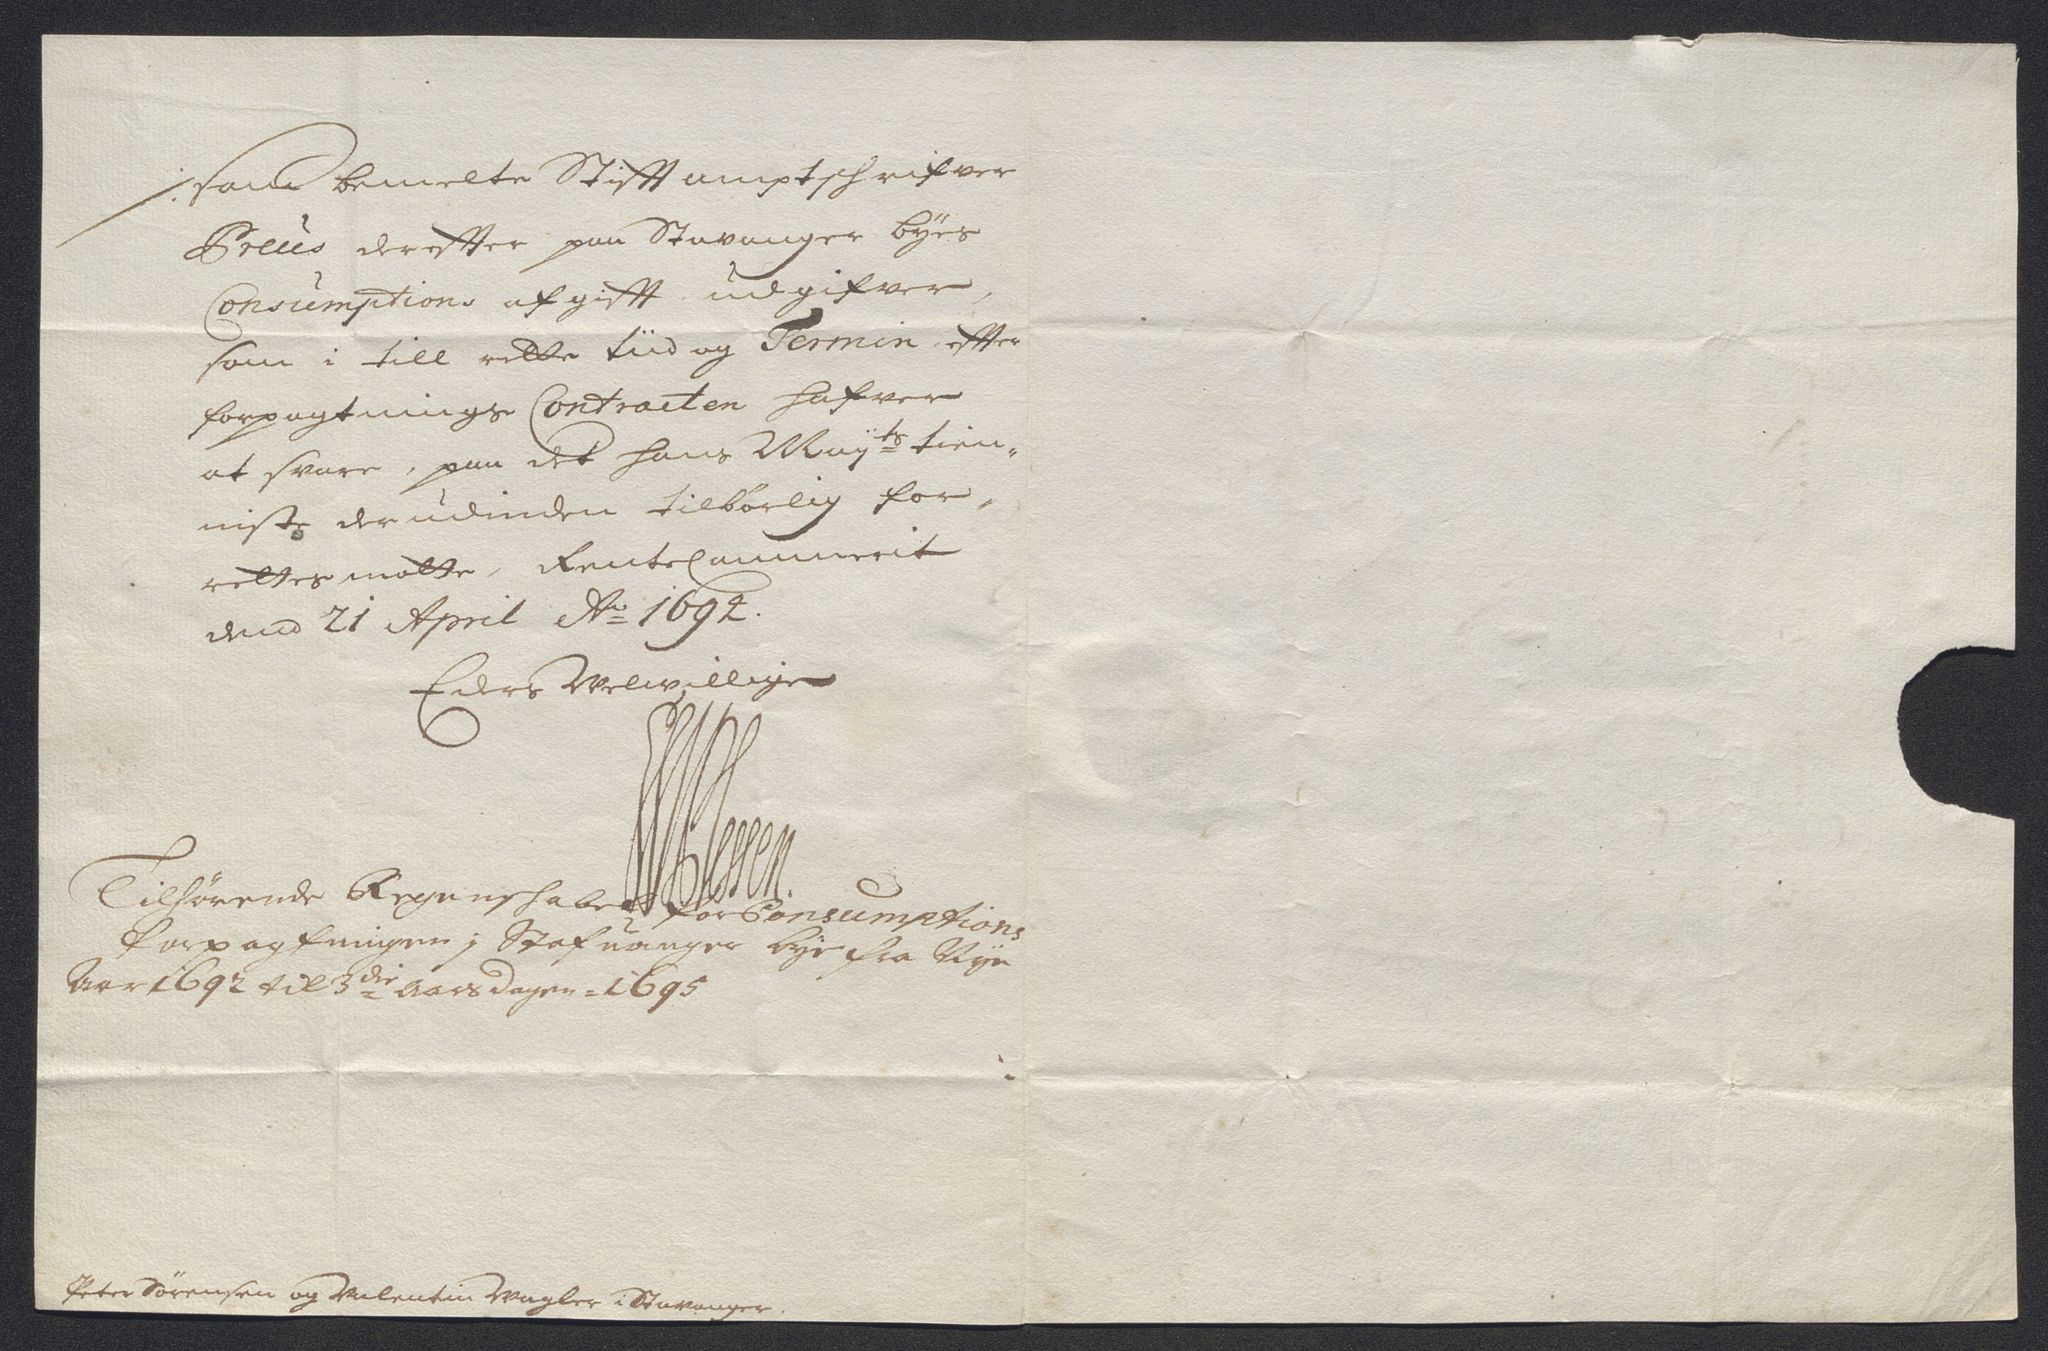 som bemelte Stifft amptschrifver
Preüs derefter paa Stavanger byes
Consumptions afgifft udgifver,
som i till rette tiid og Termin effter
forpagtnings Contracten hafver
at svare, paa det hans Mayts tien„
niste derudinden tilbörlig for„
rettes motte, RenteCammerit
dend 21 April Ao 1692.
Eders Velwillige
Tilhörende Regenshabet for Consumptions
Forpagtningen j Stafuanger bye fra Nye
Aar 1692 til 3die Aarsdagen 1695
Peter Sörensen og Valentin Wagler i Stavanger.